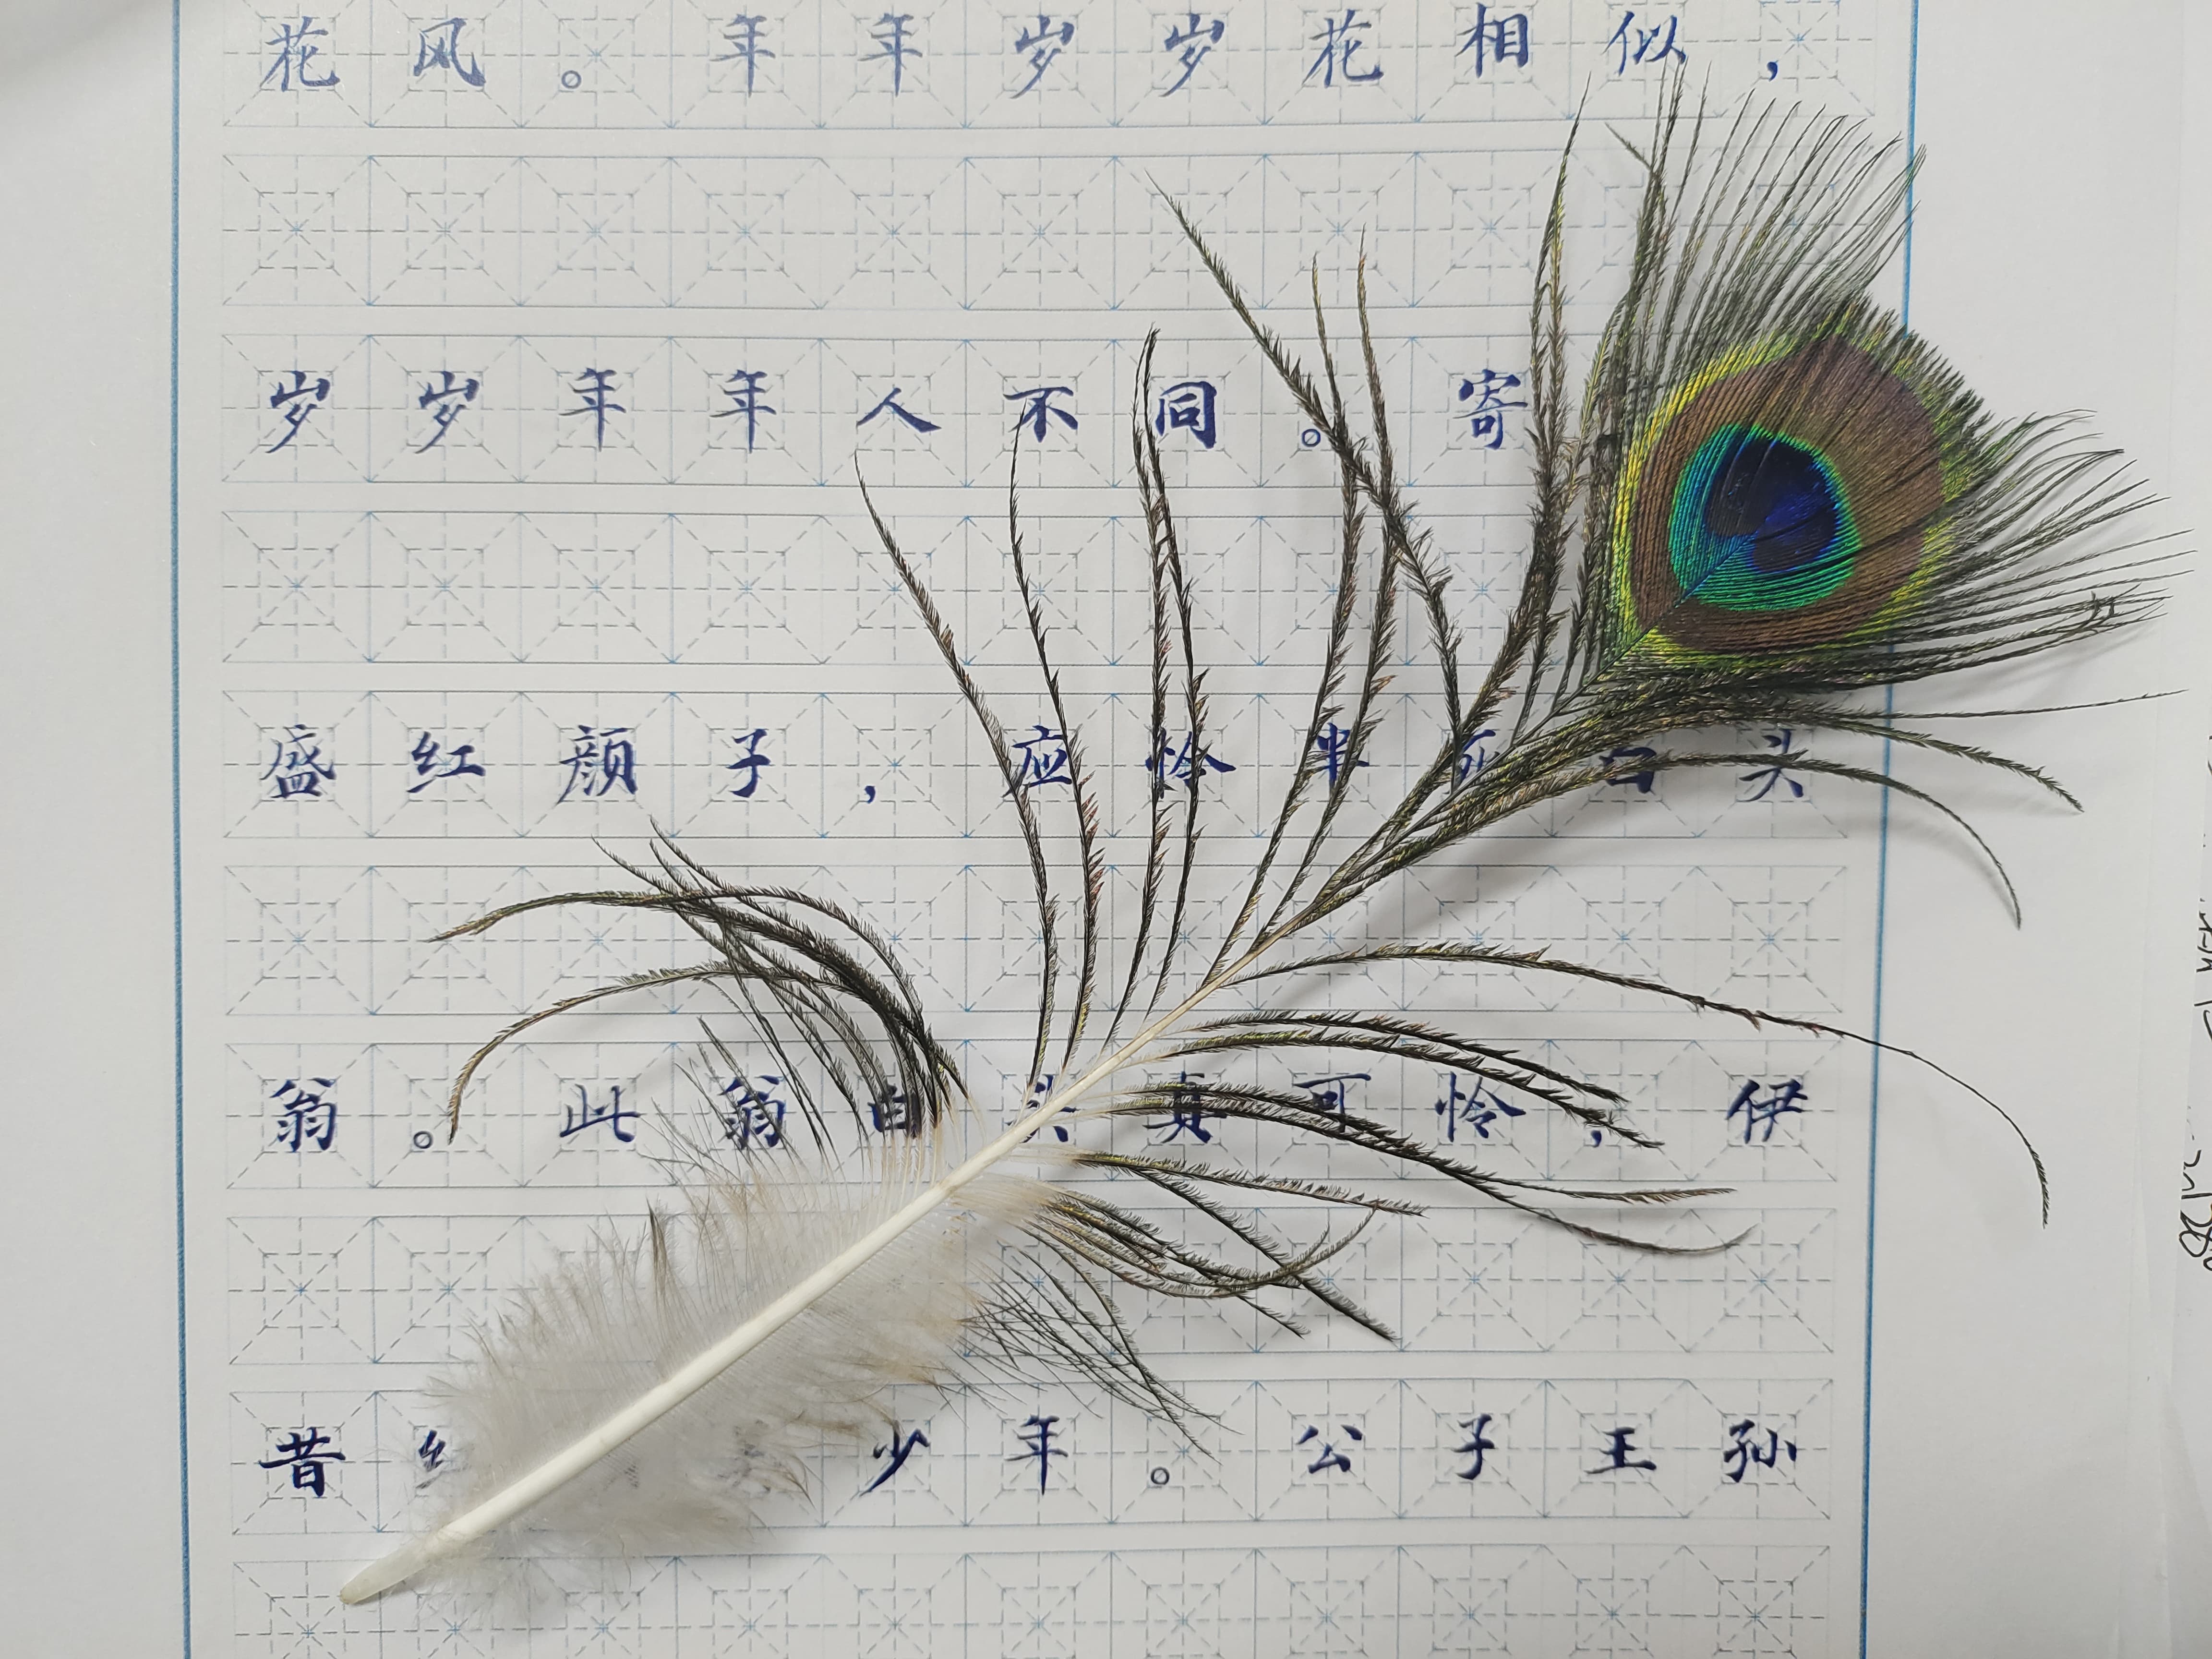 花风。年年岁岁花相似，
岁岁年年人不同。寄
盛红颜子，应怜半死白头
翁。此翁白头真可怜，伊
昔少年。公子王孙